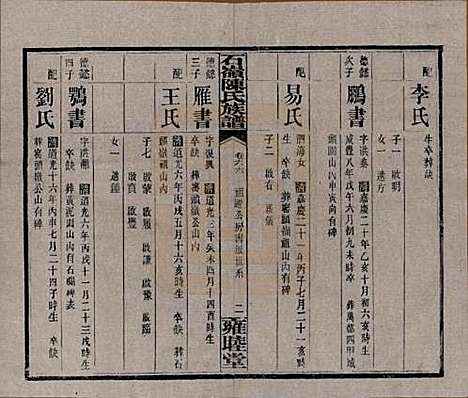 配 李氏
生卒葬缺
子一 啟明
女一 適方
德懿次子 鵬書
字洪泰 清嘉慶二十年乙亥十月初六亥時生
咸豐八年戊午六月初九未時卒 葬萬德四甲鵝
頭園山內車寅向有碑
配 易氏
泗海女 清嘉慶二十一年丙子七月二十一亥時
生 卒缺 葬鵝頭嶺祖山內有碑
子二 啟右
石嶺陳氏族譜
卷六
二
雍睦堂
德懿三子 雁書
字復興 清道光三年癸未四月十四酉時生 卒缺
葬寨頭嶺公山內
配 王氏
清道光六年丙戌五月十六亥時生 卒缺
嶺公山內
子七 啟蒙 啟謙 啟豫 啟臨
啟豐
女一 適鍾
德懿四子 鶚書
字洪薦 清道光六年丙戌十一月二十三戌時生
卒缺 葬黃泥園山內自石碣碑表
配 劉氏
清道光十六年丙申七月二十四子時生 卒缺 葬
寨頭嶺公山有碑